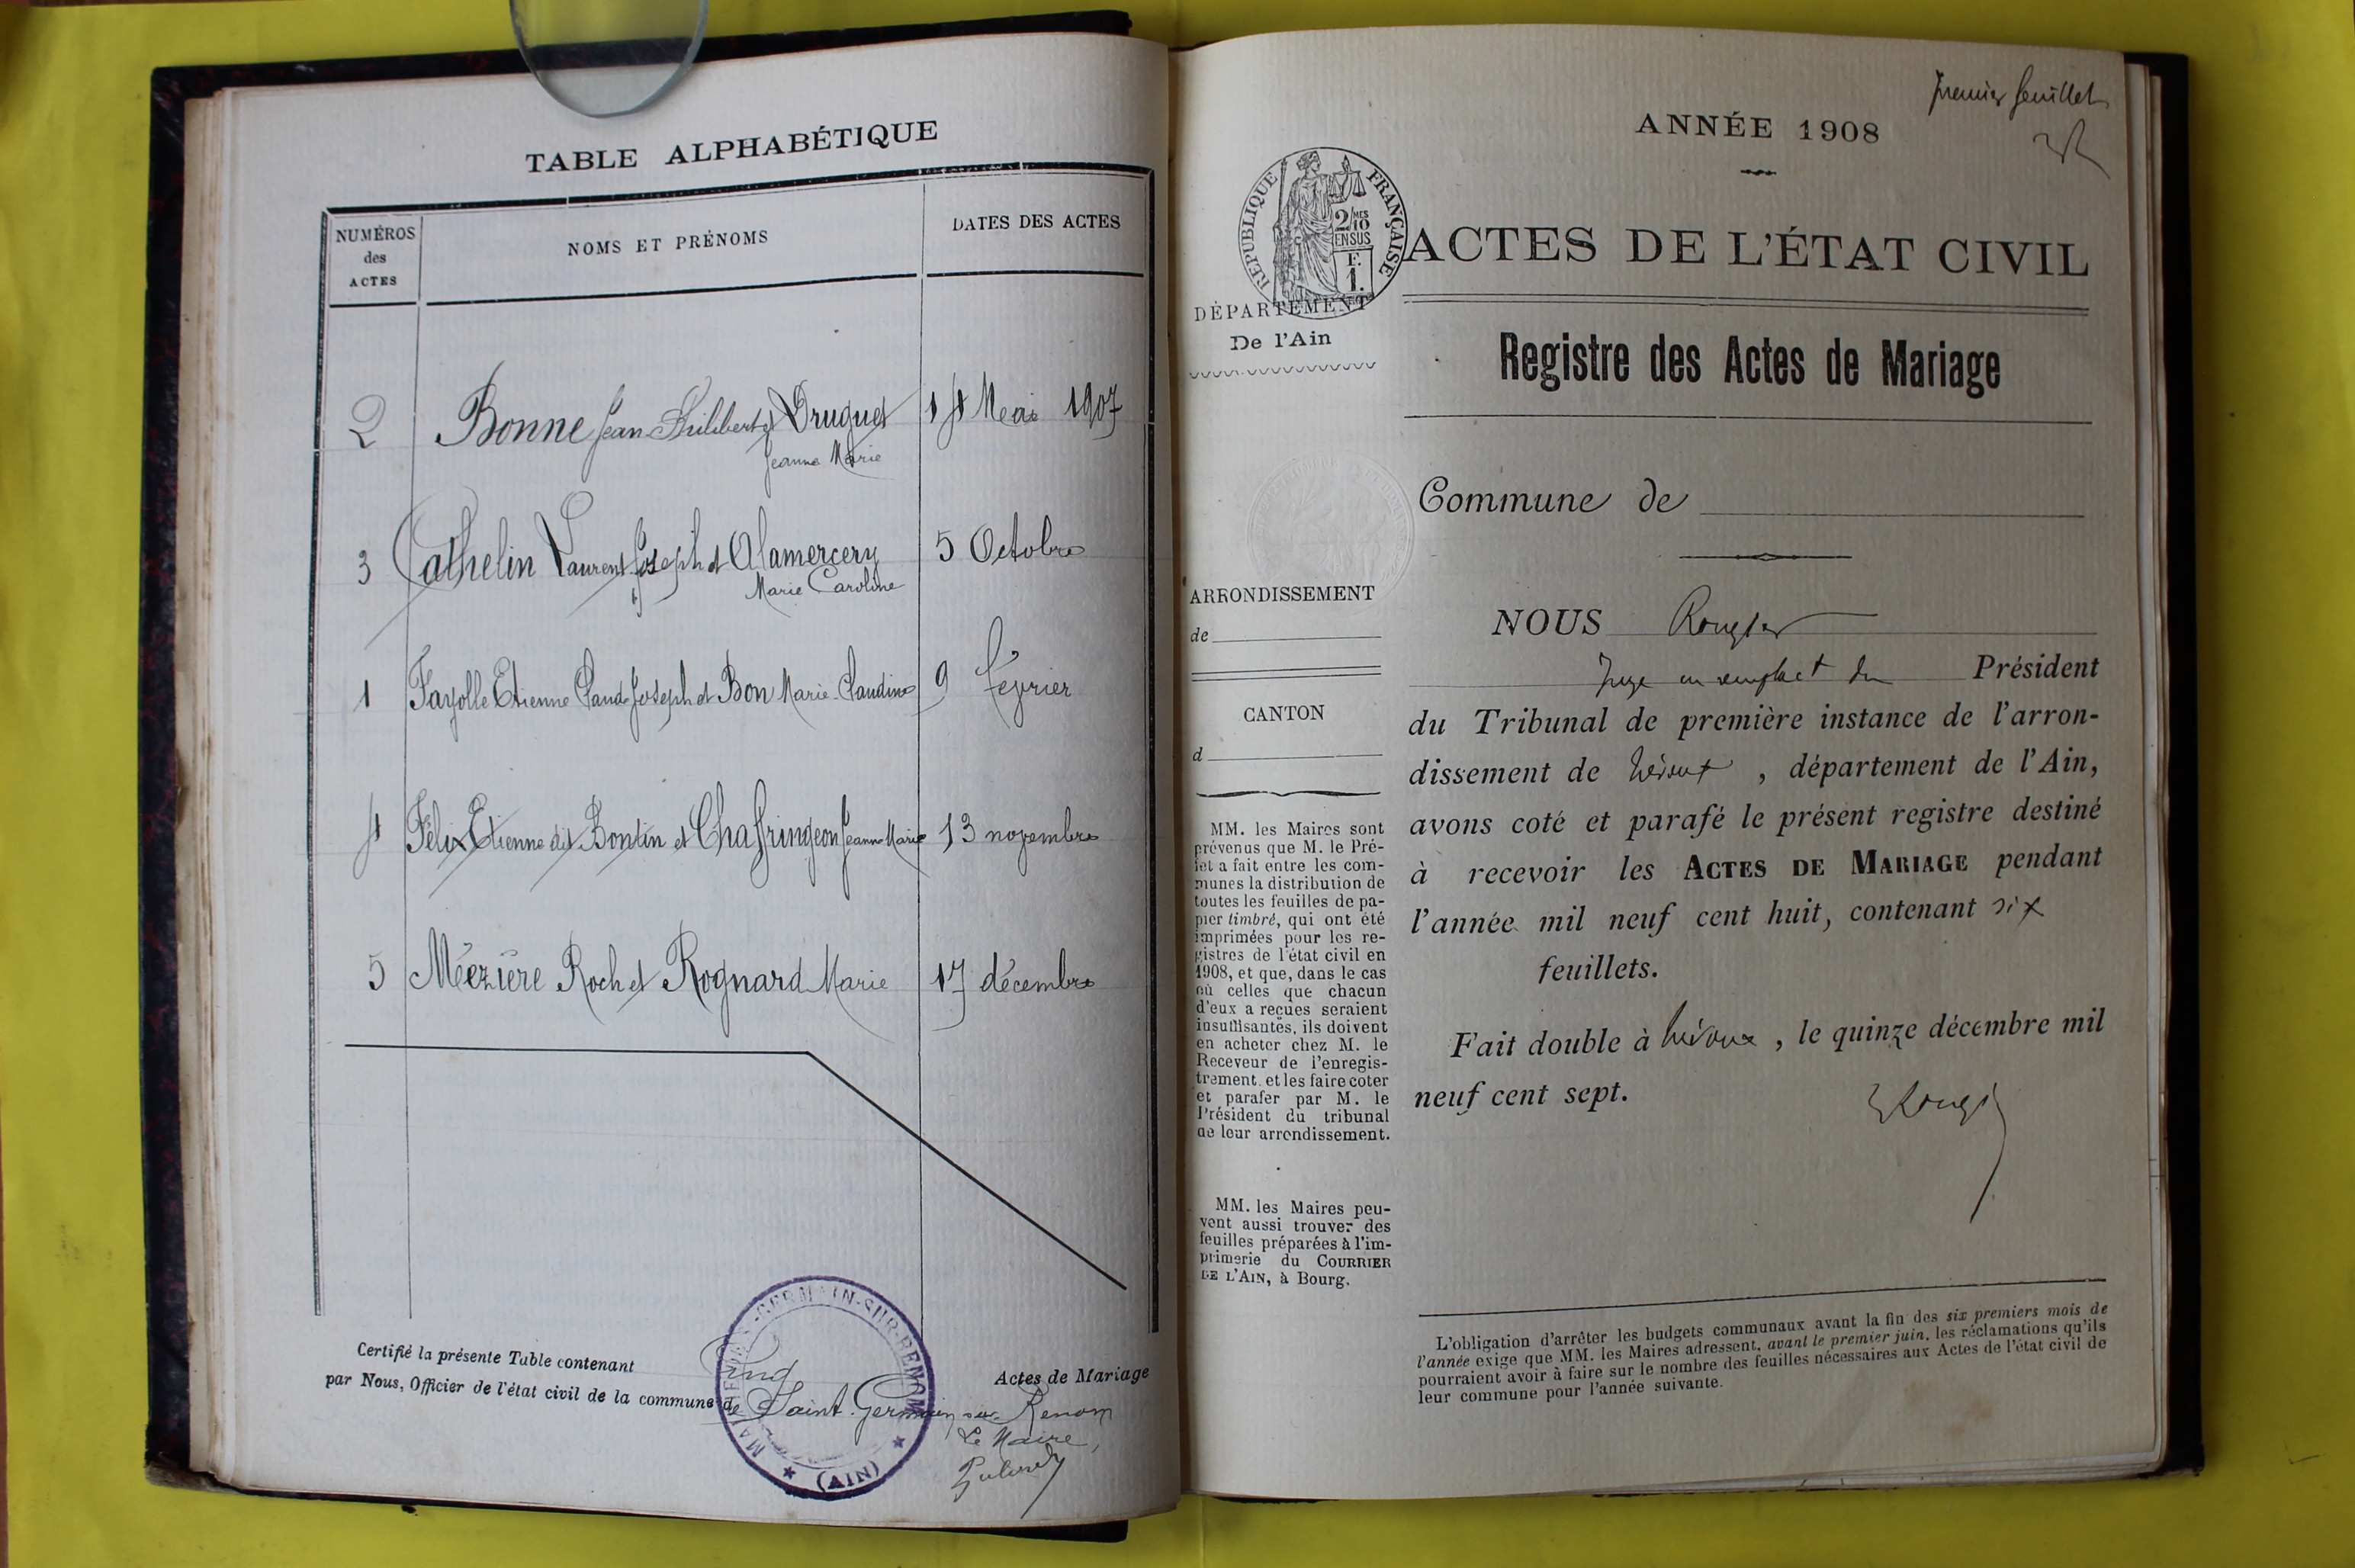 TABLE ALPHABÉTIQUE
NUMÉROS
des
ACTES
NOMS ET PRÉNOMS
DATES DES ACTES
2 Bonne Jean Philibert et Druguet 14 Mai 1907
Jeanne Marie
3 Cathelin Laurent Joseph et Alamercery 5 Octobre
Marie Caroline
1 Fayolle Etienne Claude Joseph et Bon Marie Claudine 9 février
4 Félix Etienne dit Bontin et Chaffringeon Jeanne Marie 13 novembre
5 Méézière Roch et Rognard Marie 17 décembre
Certifié la présente Table contenant cinq Actes de Mariage
par Nous, Officier de l'état civil de la commune de Saint-Germain-sur-Renom
Le Maire,
MAIRIE DE ST-GERMAIN-SUR-RENOM
(AIN)
premier feuillet
ANNÉE 1908
RÉPUBLIQUE FRANÇAISE
2/10MES
EN SUS
F.
1.
ACTES DE L'ÉTAT CIVIL
DÉPARTEMENT
De l'Ain
Registre des Actes de Mariage
Commune de
ARRONDISSEMENT
de
CANTON
d
MM. les Maires sont
prévenus que M. le Pré-
fet a fait entre les com-
munes la distribution de
toutes les feuilles de pa-
pier timbré, qui ont été
imprimées pour les re-
gistres de l'état civil en
1908, et que, dans le cas
où celles que chacun
d'eux a reçues seraient
insuffisantes, ils doivent
en acheter chez M. le
Receveur de l'enregis-
trement, et les faire coter
et parafer par M. le
Président du tribunal
de leur arrondissement.
MM. les Maires peu-
vent aussi trouver des
feuilles préparées à l'im-
primerie du COURRIER
DE L'AIN, à Bourg.
NOUS Rougier
Juge en remplact du Président
du Tribunal de première instance de l'arron-
dissement de Trévoux, département de l'Ain,
avons coté et parafé le présent registre destiné
à recevoir les ACTES DE MARIAGE pendant
l'année mil neuf cent huit, contenant six
feuillets.
Fait double à Trévoux, le quinze décembre mil
neuf cent sept.
Rougier
L'obligation d'arrêter les budgets communaux avant la fin des six premiers mois de
l'année exige que MM. les Maires adressent, avant le premier juin, les réclamations qu'ils
pourraient avoir à faire sur le nombre des feuilles nécessaires aux Actes de l'état civil de
leur commune pour l'année suivante.